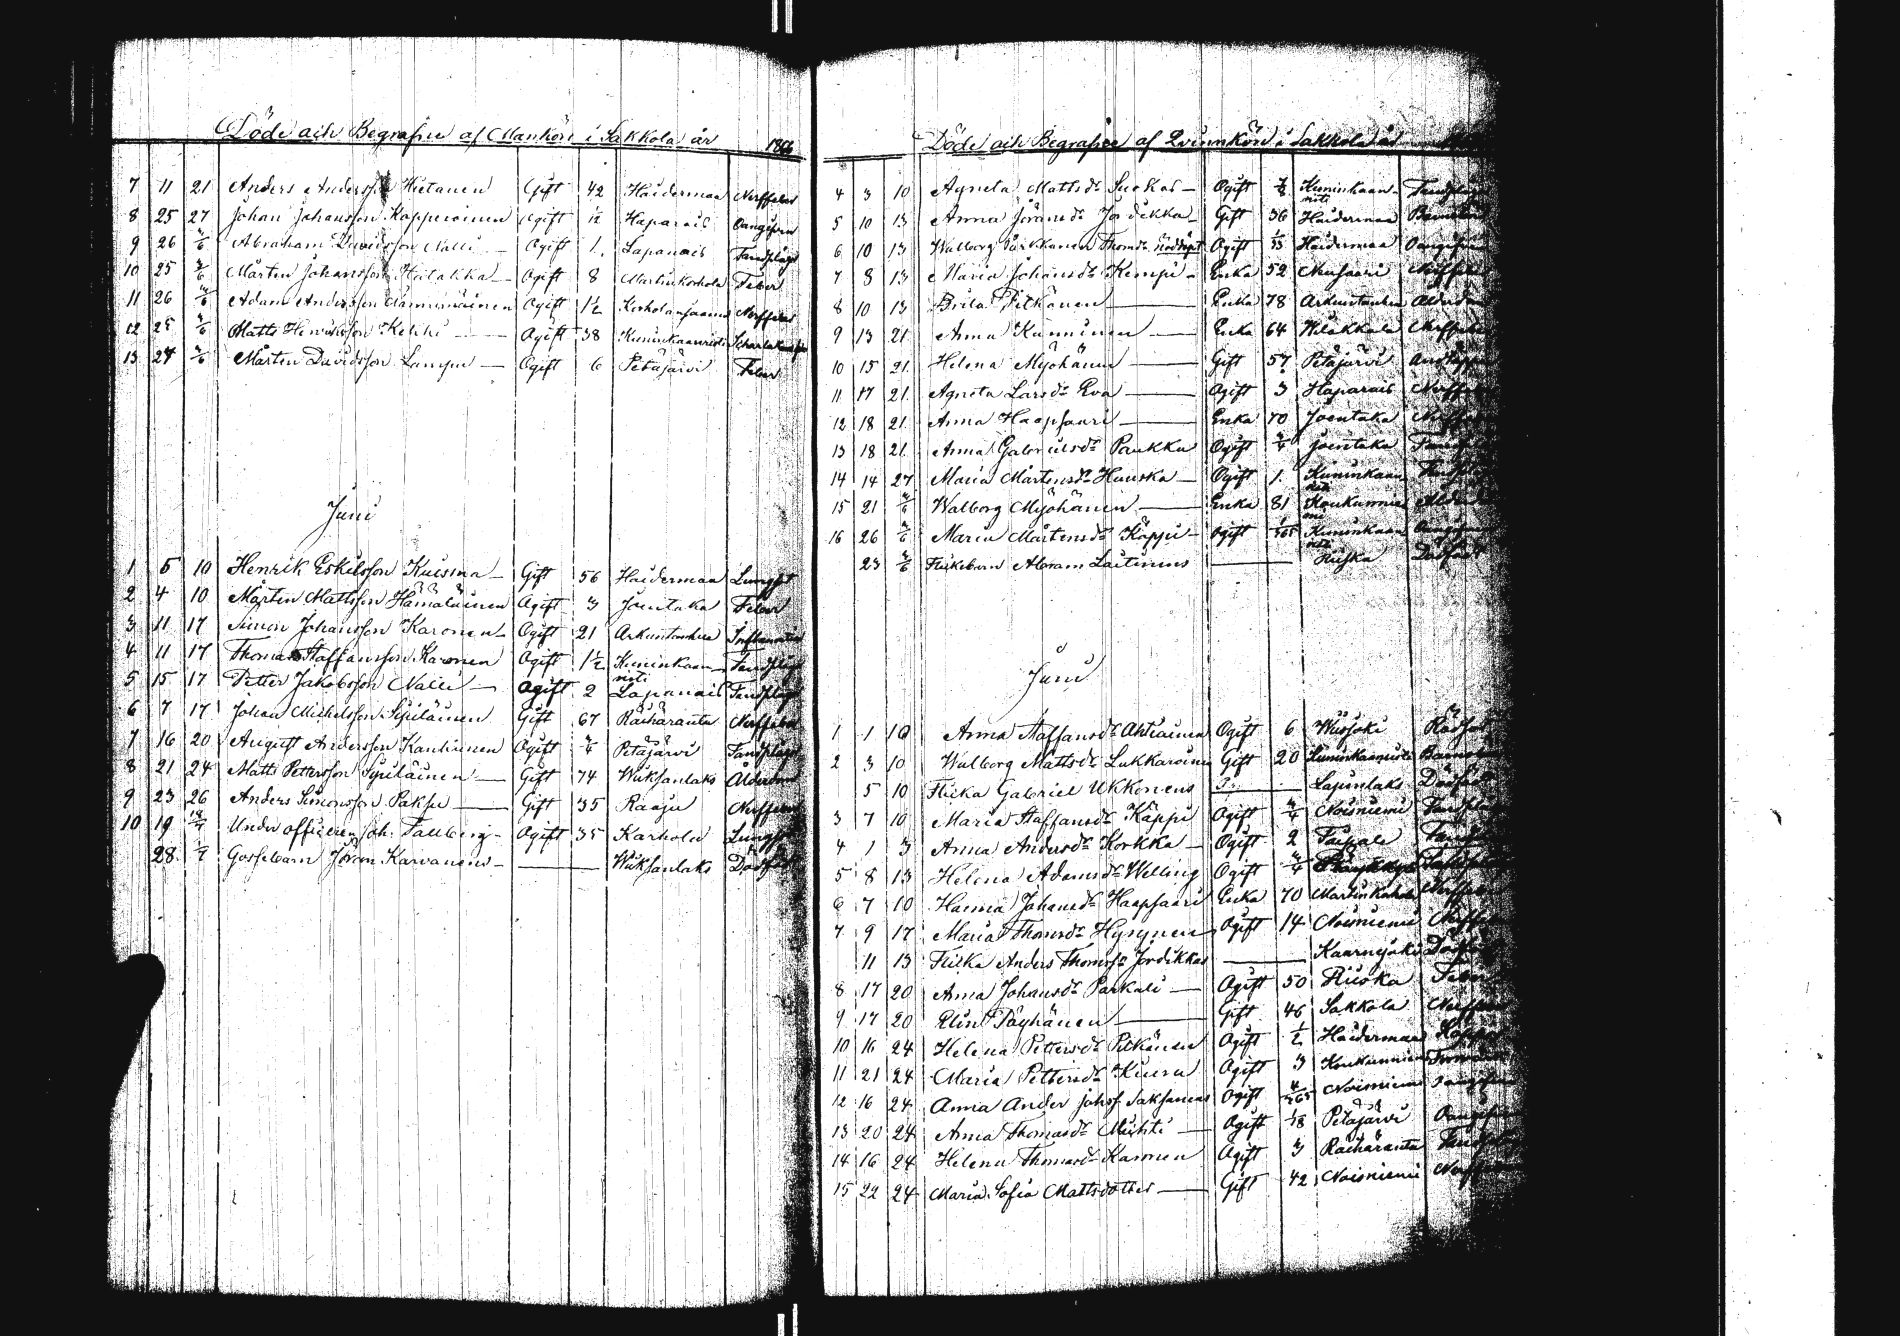 Döde och Begrafne af Mankön i Sakkola år 1866
7 11 21 Anders Andersson Hietanen Gift 42 Haidermaa Nerffeber
8 25 27 Johan Johansson Kopperoinen Ogift 1/12 Haparais Oangifven
9 26 3/6 Abraham Davidsson Nalli Ogift 1. Lapanais Tandplåga
10 25 3/6 Mårten Johansson Hatakka Ogift 8 Martinkorhola Feber
11 26 Adam Andersson Ogift 1 1/2 Nerffeber
12 25 3/6 Matts Henriksson Ogift 38 Kuninkaanristi
13 27 3/6 Mårten Davidsson Lampu Ogift 6 Petäjärvi Feber
Juni
1 5 10 Henrik Eskilsson Kuisma Gift 56 Haidermaa Lungsot
2 4 10 Mårten Mattsson Hämäläinen Ogift 3 Joentaka Feber
3 11 17 Simon Johansson Karonen Ogift 21 Arkuntanhua Inflamation
4 11 17 Thomas Staffansson Karonen Ogift 1 1/2 Kuninkaanristi Tandplåga
5 15 17 Petter Jakobsson Nalli Ogift 2 Lapanais Tandplåga
6 7 17 Johan Michelsson Sipiläinen Gift 67 Räihäranta Nerffeber
7 16 20 August Andersson Kaukiainen Ogift 3/4 Petäjärvi Tandplåga
8 21 24 Matts Pettersson Sipiläinen Gift 74 Wiiksanlaks Ålderdom
9 23 26 Anders Simonsson Paksu Gift 35 Raaju Nerffeber
10 19 Under officeren Joh. Ogift 35 Karhola Lungsot
28 1/7 Gossebarn Jöran Karvanens Wiiksanlaks Dödfödt
Döde och Begrafne af Qvinnkön i Sakkola år
4 3 10 Agneta Mattsdr Suokas Ogift Kuninkaanristi Tandplåga
5 10 13 Anna Jöransdr Jordikka Gift 36 Haidermaa Barnsbörd
6 10 13 Walborg Pärkkanen Thomsdr Nöddöpt Ogift Haidermaa Oangifven
7 8 13 Maria Johansdr Kemppi Enka 52 Nerffeber
8 10 13 Brita Pitkänen Enka 78 Arkuntanhua Ålderdom
9 13 21 Anna Kunninen Enka 64 Wilakkala Nerffeber
10 15 21 Helena Myöhänen Gift 57 Petäjärvi Andtäppa
11 17 21 Agneta Larsdr Eva Ogift 3 Haparais Nerffeber
12 18 21 Anna Haapsaari Enka 70 Joentaka Nerffeber
13 18 21 Anna Gabrielsdr Paukku Ogift 3/4 Joentaka Tandplåga
14 14 27 Maria Mårtensdr Hauska Ogift 1. Kuninkaanristi Tandplåga
15 21 3/6 Walborg Myöhänen Enka 81 Koukunniemi Ålderdom
16 26 3/6 Maria Mårtensdr Käppi Ogift Kuninkaanristi Oangifven
23 3/6 Flickebarn Abram Laitinens Riiska Dödfödt
Juni
1 1 10 Anna Staffansdr Ahtiainen Ogift 6 Wiisjoki Rödsot
2 3 10 Walborg Mattsdr Lukkaroinen Gift 20 Kuninkaanristi Barnsbörd
5 10 Flicka Gabriel Ukkonens Lapinlaks Dödfödt
3 7 10 Maria Staffansdr Käppi Ogift 3/4 Noisniemi Tandplåga
4 1 3 Anna Andersdr Korkka Ogift 2 Taipale
5 8 13 Helena Adamsdr Welling Ogift 3/4
6 7 10 Haapsaari Enka 70 Martinkorhola Nerffeber
7 9 17 Maria Thomsdr Hyyynen Ogift 14 Noisniemi Nerffeber
11 13 Flicka Anders Thomss Jordikkas Kaarnajoki Dödfödt
8 17 20 Anna Johansdr Parkali Ogift 50 Riiska Feber
9 17 20 Elin Päyhänen Gift 46 Sakkola Nerffeber
10 16 24 Helena Pettersdr Pitkänen Ogift 1/2 Haidermaa Koppor
11 21 24 Maria Pettersdr Kiuru Ogift 3 Koukunniemi
12 16 24 Anna Ander Johss Saksanens Ogift 4/365 Noisniemi Oangifven
13 20 24 Anna Thomasdr Ogift Petäjärvi Oangifven
14 16 24 Helena Thomasdr Karonen Ogift 3 Räihäranta Tandplåga
15 22 24 Maria Sofia Mattsdotter Gift 42 Noisniemi Nerffeber